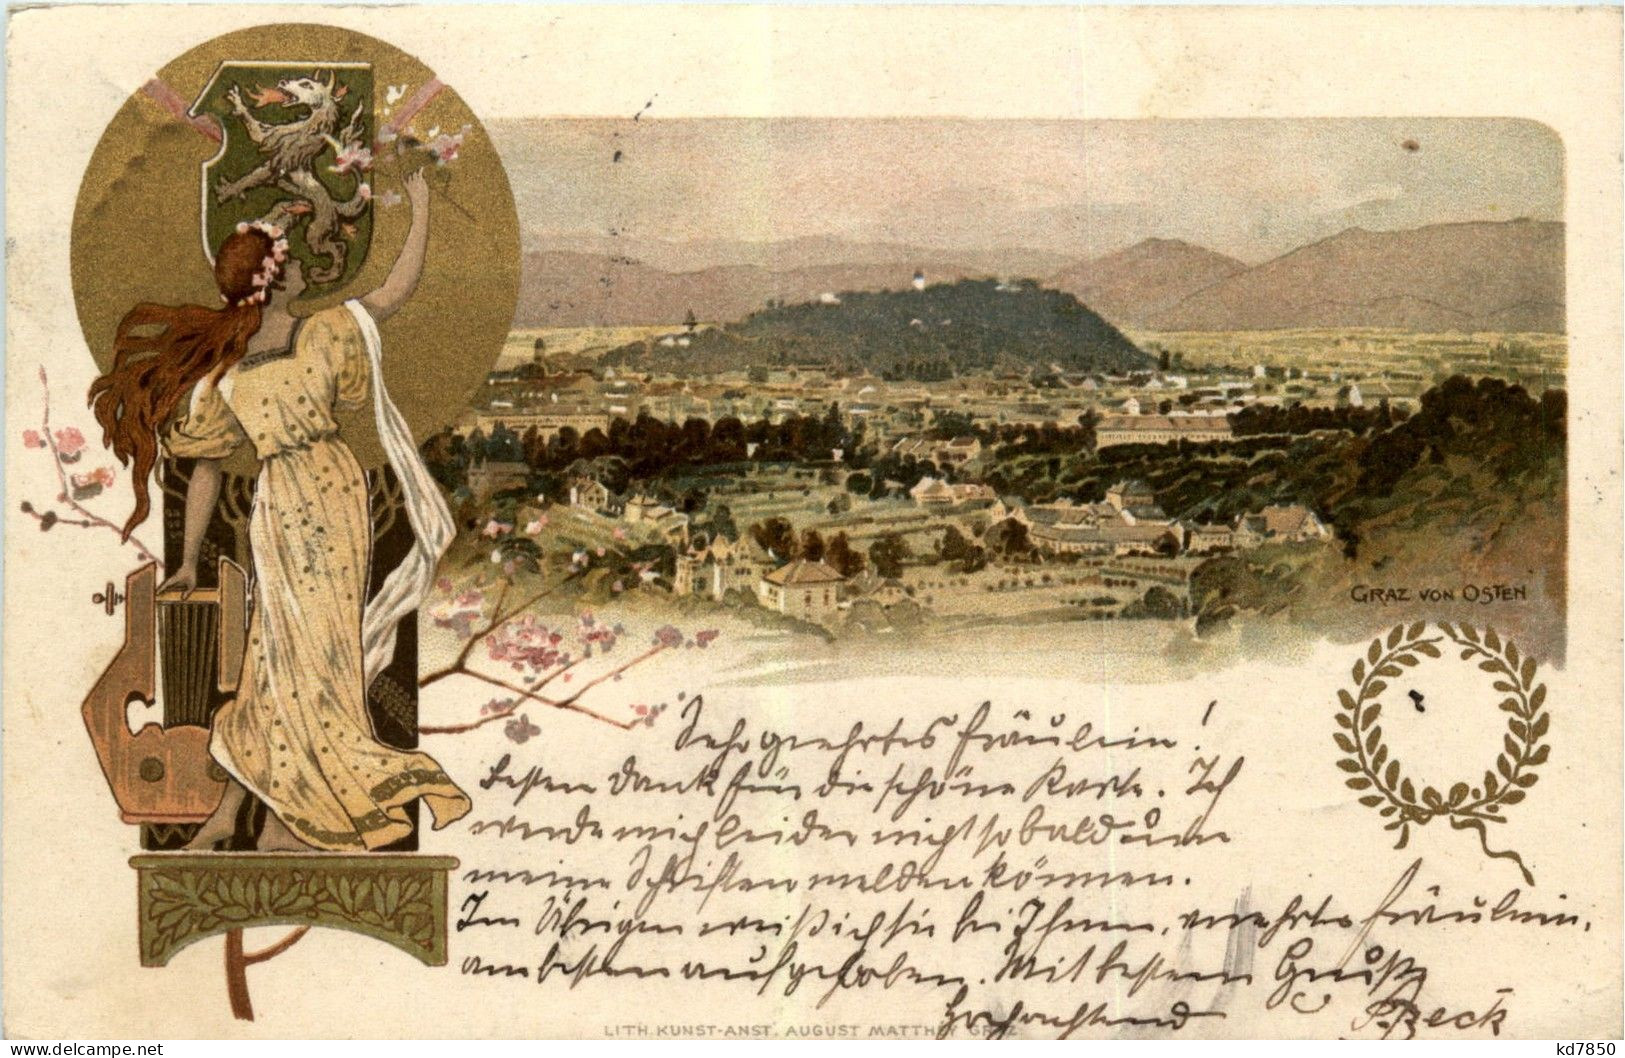 GRAZ VON OSTEN
Sehr geehrtes Fräulein!
Besten Dank für die schöne Karte. Ich
werde mich leider nicht so bald um
meine Schriften melden können.
Im Übrigen weiß ich sie bei Ihnen, verehrtes Fräulein,
am besten aufgehoben. Mit bestem Gruß
Hochachtend Beck
LITH. KUNST-ANST. AUGUST MATTHEY GRAZ
kd7850